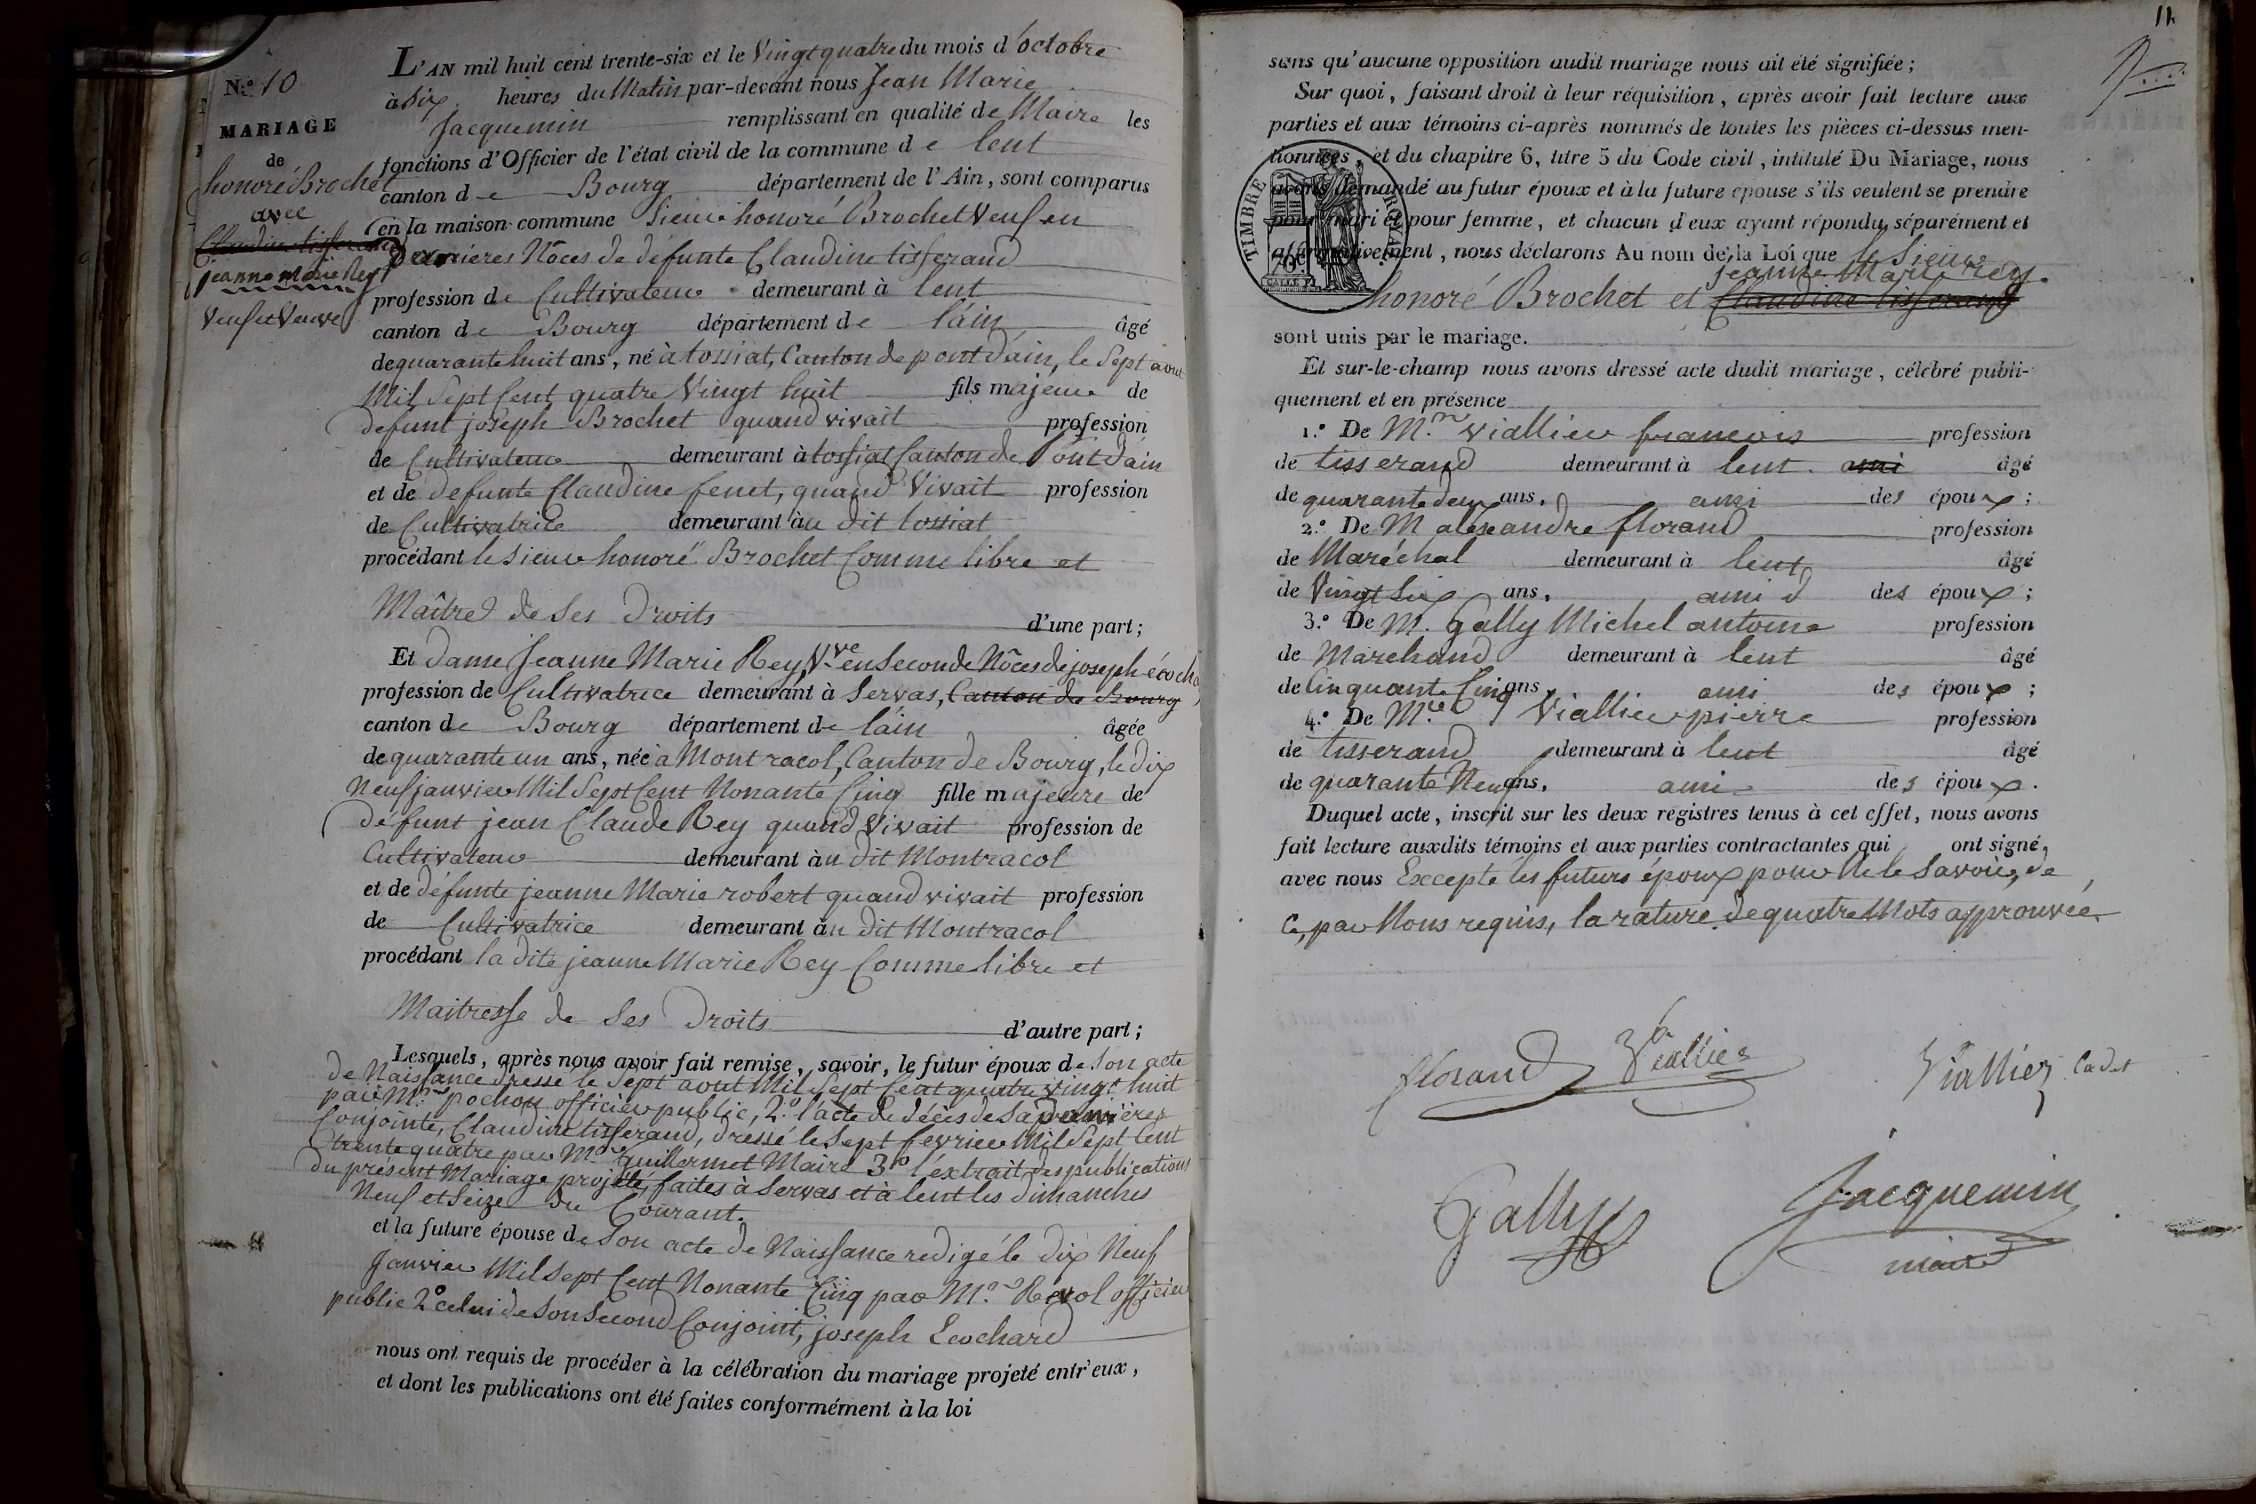 N.º 10
MARIAGE
de
honoré Brochet
avec
Claudine tisserand
jeanne marie Rey
Veuf et Veuve
L'AN mil huit cent trente-six et le Vingt quatre du mois d'octobre
à Six heures du Matin par-devant nous Jean Marie
Jacquemin remplissant en qualité de Maire les
fonctions d'Officier de l'état civil de la commune de lent
canton de Bourg département de l'Ain, sont comparus
en la maison commune Sieur honoré Brochet Veuf en
Noces de défunte Claudine tisserand
profession de Cultivateur demeurant à lent
canton de Bourg département de l'ain âgé
de quarante huit ans, né à tossiat, Canton de pont d'ain, le Sept aout
Mil Sept Cent quatre Vingt huit fils majeur de
défunt joseph Brochet quand vivait profession
de Cultivateur demeurant à tossiat Canton de Pont d'ain
et de défunte Claudine fenet, quand Vivait profession
de Cultivatrice demeurant àu dit tossiat
procédant le Sieur honoré Brochet Comme libre et
Maître de Ses Droits d'une part;
Et dame Jeanne Marie Rey, Vve en Seconde Nôces de joseph
profession de Cultivatrice demeurant à Servas, Canton de Bourg
canton de Bourg département de l'ain âgée
de quarante un ans, née à Montracol, Canton de Bourg, le dix
Neuf janvier Mil Sept Cent Nonante Cinq fille majeure de
défunt jean Claude Rey quand Vivait profession de
Cultivateur demeurant àu dit Montracol
et de défunte jeanne Marie robert quand vivait profession
de Cultivatrice demeurant àu dit Montracol
procédant la dite jeanne Marie Rey Comme libre et
Maitresse de Ses Droits d'autre part;
Lesquels, après nous avoir fait remise, savoir, le futur époux de Son acte
de Naissance dressé le Sept aout Mil Sept Cent quatre vingt huit
par Mr. pochon officier public, 2.º l'acte de décès de Sa
Conjointe, Claudine tisserand, dressé le Sept fevrier Mil Sept Cent
trente quatre par Mr. Guillermet Maire 3º l'extrait des publications
du présent Mariage projetté, faites à Servas et à lent les dimanches
Neuf et Seize du Courant.
et la future épouse de Son acte de Naissance redigé le dix Neuf
Janvier Mil Sept Cent Nonante Cinq par Mr. Revol officier
public 2º celui de Son Second Conjoint, joseph Ecochard
nous ont requis de procéder à la célébration du mariage projeté entr'eux,
et dont les publications ont été faites conformément à la loi
11
sans qu'aucune opposition audit mariage nous ait été signifiée;
Sur quoi, faisant droit à leur réquisition, après avoir fait lecture aux
parties et aux témoins ci-après nommés de toutes les pièces ci-dessus men-
tionnées, et du chapitre 6, titre 5 du Code civil, intitulé Du Mariage, nous
avons demandé au futur époux et à la future épouse s'ils veulent se prendre
pour mari et pour femme, et chacun d'eux ayant répondu séparément et
affirmativement, nous déclarons Au nom de la Loi que le Sieur
TIMBRE ROYAL
70
jeanne Marie Rey.
honoré Brochet et Claudine tisserand
sont unis par le mariage.
Et sur-le-champ nous avons dressé acte dudit mariage, célébré publi-
quement et en présence
1.º De Mr. Viallier francois profession
de tisserand demeurant à lent ami âgé
de quarante deux ans, ami des époux;
2.º De M alexandre florand profession
de Maréchal demeurant à lent âgé
de Vingt Six ans, ami des époux;
3.º De M. Gally Michel antoine profession
de Marchand demeurant à lent âgé
de Cinquante Cinq ans ami des époux;
4.º De Mr. Viallier pierre profession
de tisserand demeurant à lent âgé
de quarante Neuf ans, ami des époux.
Duquel acte, inscrit sur les deux registres tenus à cet effet, nous avons
fait lecture auxdits témoins et aux parties contractantes qui ont signé,
avec nous Excepté les futurs époux pour Ne le Savoir, de
Ce, par Nous requis, la rature de quatre Mots approuvée.
florand Viallier Viallier Cadet
Gally Jacquemin
maire